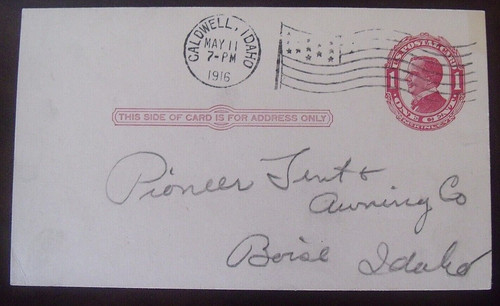 CALDWELL, IDAHO
MAY 11
7-PM
1916
U.S. POSTAL CARD
1 1
ONE CENT
THIS SIDE OF CARD IS FOR ADDRESS ONLY
Pioneer Tent &
Awning Co
Boise Idaho